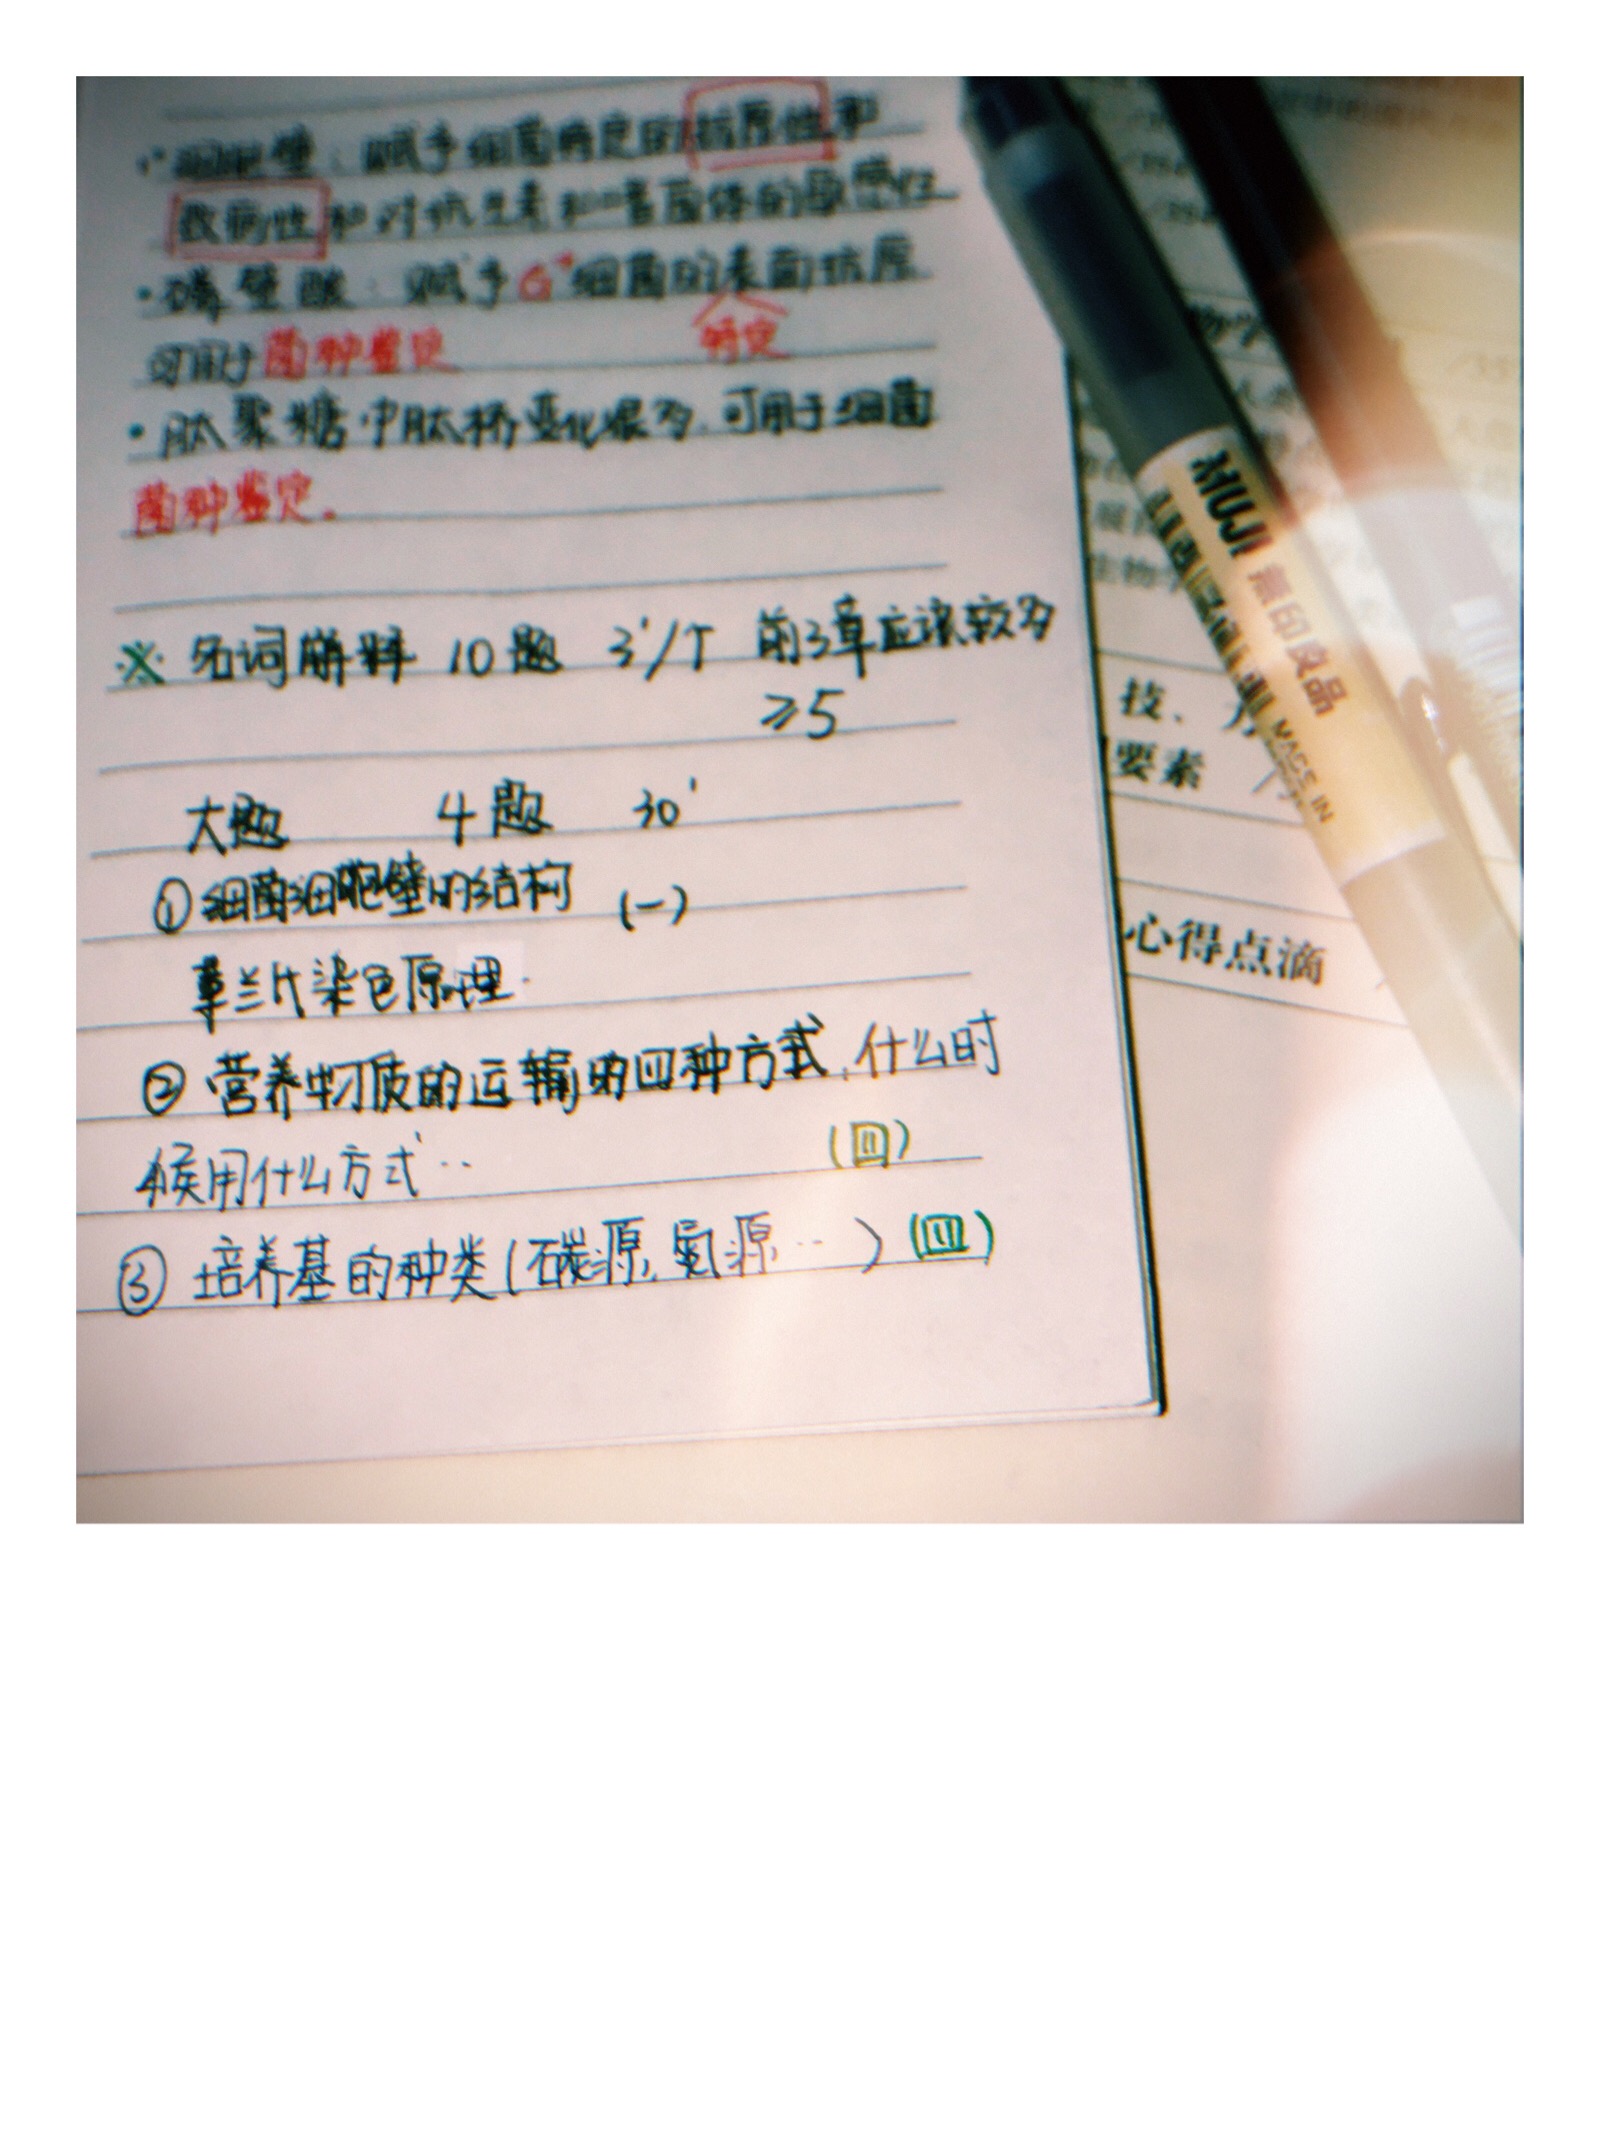 · 细胞壁：赋予细菌特定的抗原性和
致病性和对抗生素和噬菌体的敏感性
· 磷壁酸：赋予G⁺细菌的表面抗原
特定
可用于菌种鉴定
· 肽聚糖中肽桥变化很多，可用于细菌
菌种鉴定。
※ 名词解释 10题 3'/个 前3章应该较多
≥5
大题 4题 30'
①细菌细胞壁的结构 (一)
革兰氏染色原理.
② 营养物质的运输的四种方式，什么时
候用什么方式··
(四)
③ 培养基的种类(碳源，氮源··· ) (四)
MUJI 無印良品
MADE IN
技、
要素
心得点滴